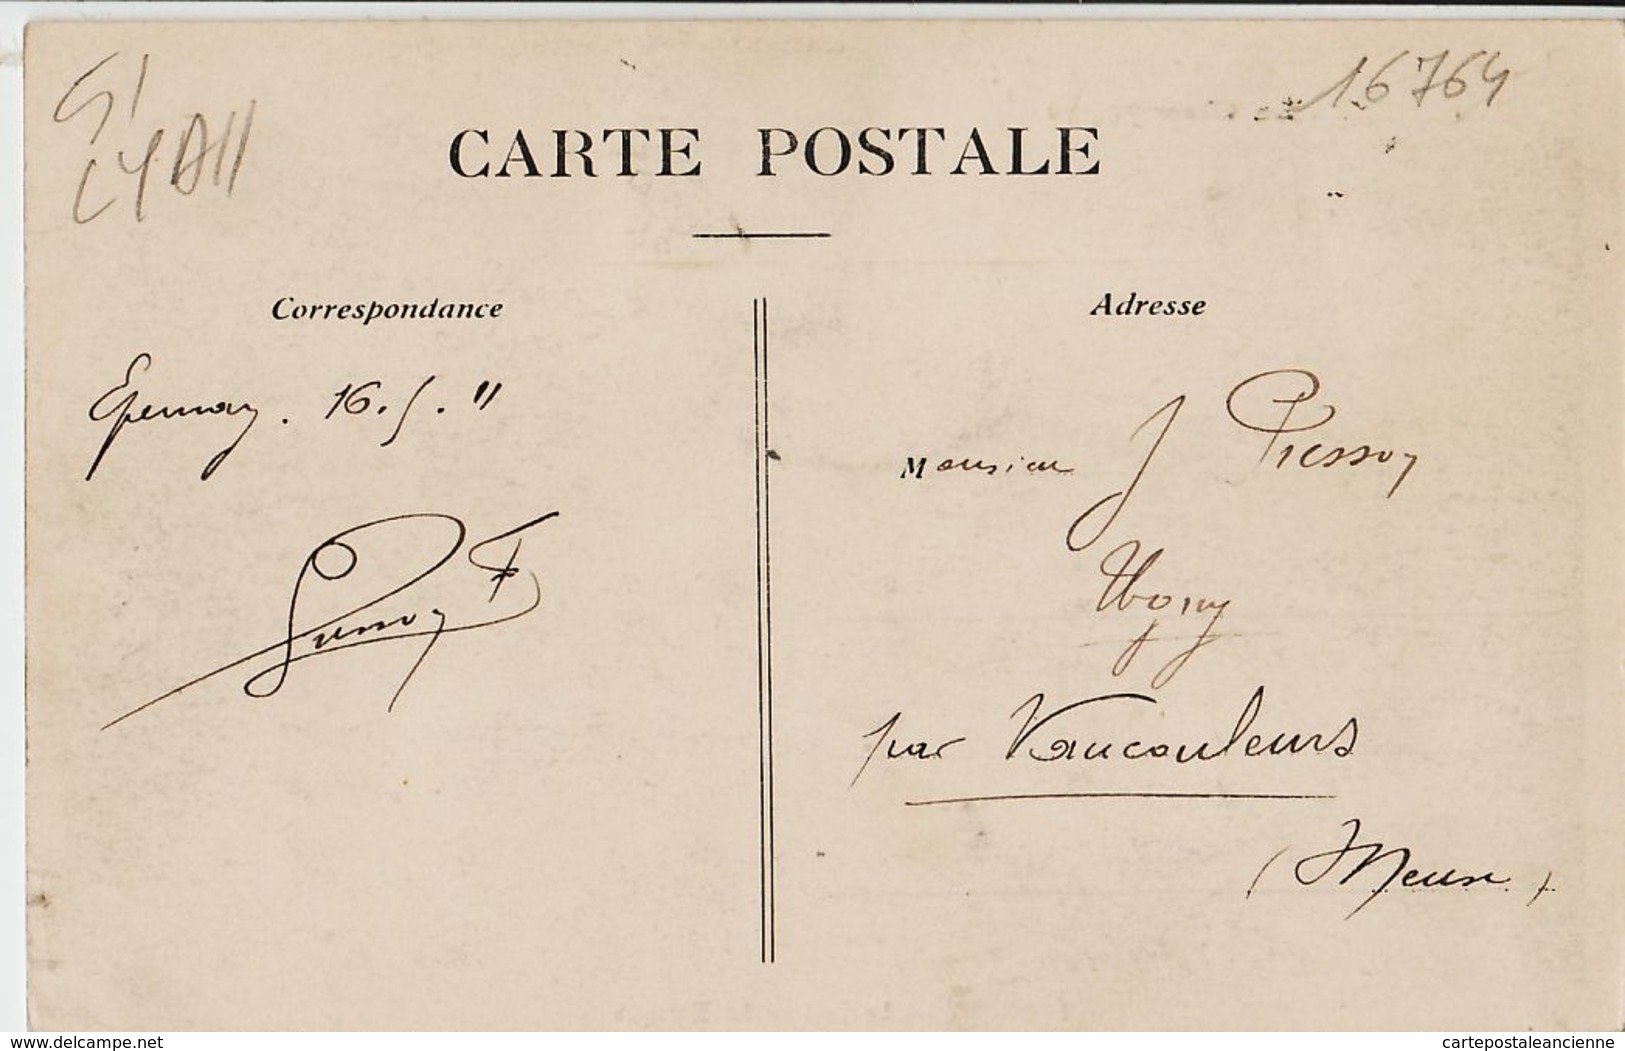 51
16764
CARTE POSTALE
Correspondance
Adresse
Epernay. 16.5.11
Monsieur J Pressoy
Ugny
par Vaucouleurs
(Meuse)
www.delcampe.net
cartepostaleancienne